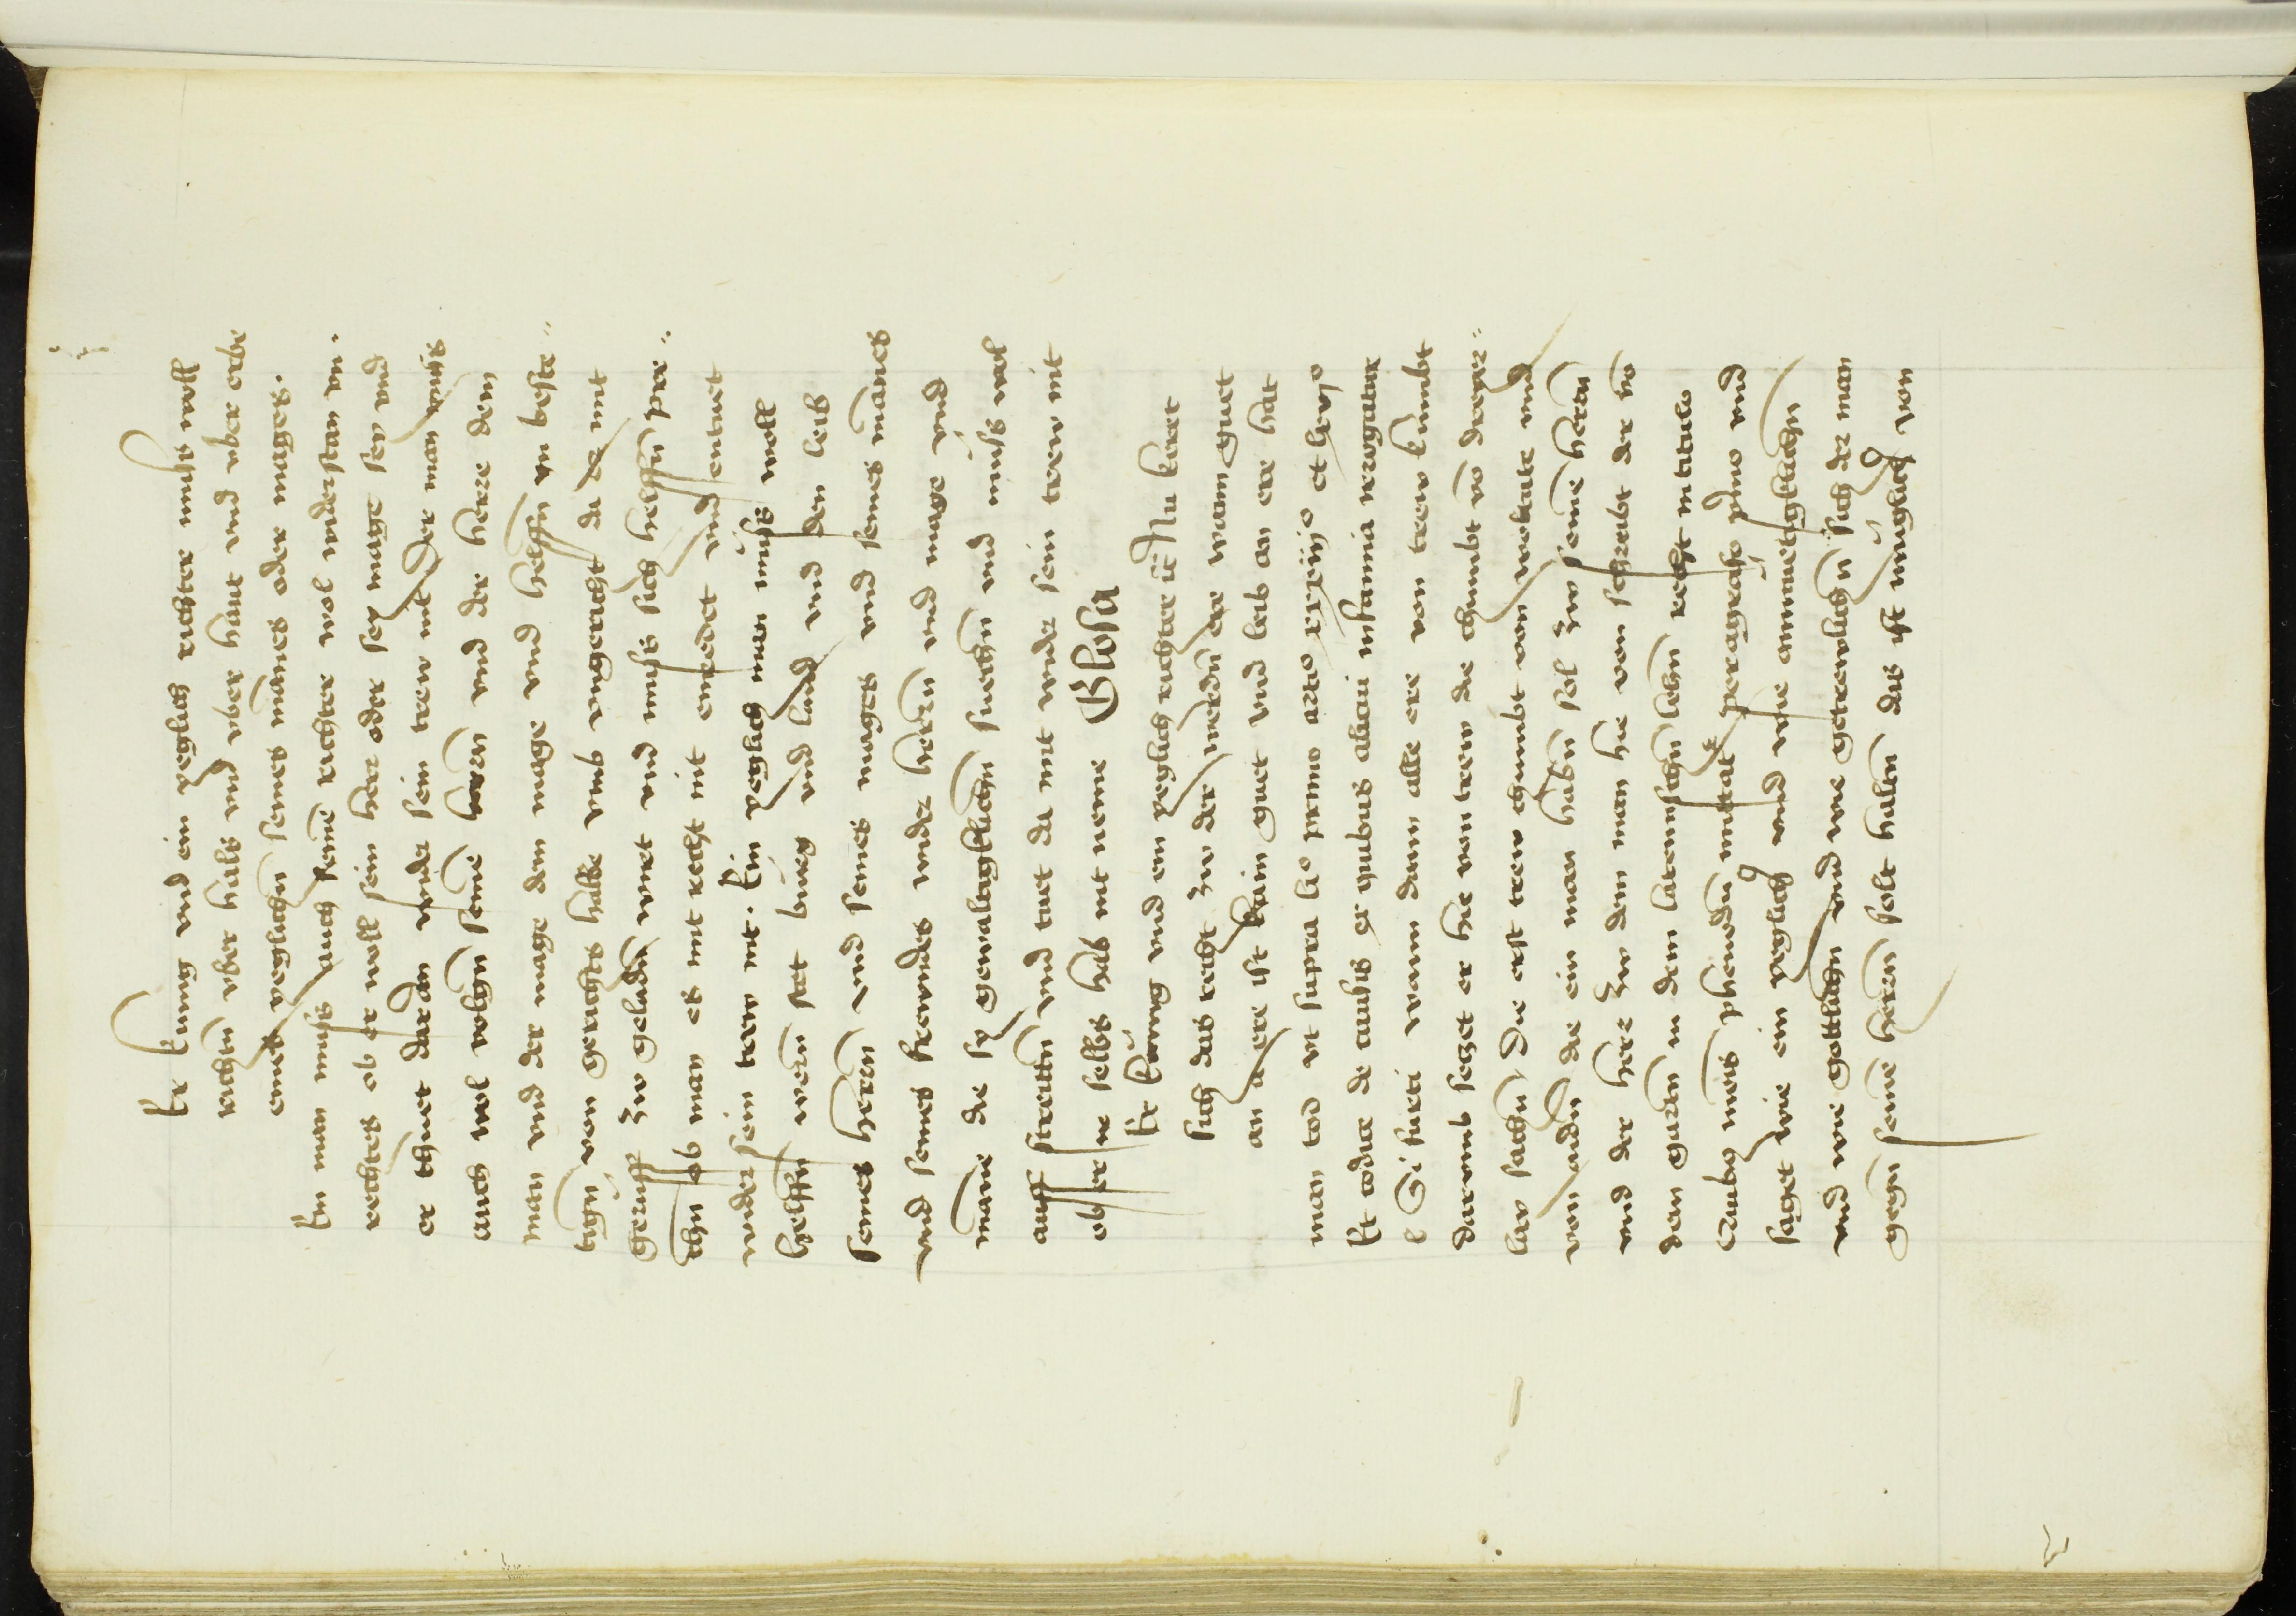 Er kunig vnd ein yeglich richter muss woll
richtn vber hals vnd vber haut vnd vber erbe
eines yeglichn seines mānes oder mages.
Ein man muss auch seinē richter wol widerstan vn.
rechtes ob er woll sein herr oder sey mage sey vnd
er thuet daran wider sein trew nit Der man muss
auch wol volgn seinē herrn vnd der herre dem
man vnd der mage dem mage vnd helffn vn beste
tign von gerichts halbe vmb vngericht da mit
geruff zw geladn wirt vnd muss sich helffn
ob man es mit recht nit enredet vnd entuet
wider sein trew nit. Ein yeglich man muss woll
helffn wern stet burg vnd land vnd den leib
seines heren vnd seines mages vnd seines mānes
vnd seines frewndes wider heren vnd mage vnd
mānne die sy gewaltigklichn suechn vnd muss wol
auff streittn vnd tuet da mit wider sein trew nit
ob er ir selbs hab nit neme Glosa
Er kunig vnd ein yeglich richter ꝛc Nu keret
sich das recht zw der werdn ere wann guet
an ere ist kain guet vnd leib an ere hat
man tod vt supra lio primo arto xxxiijo et
Et codice de causis ex quibus alicui infamia irrogatur
l Si furti wann dann alle ere von trew kumbt
darvmb seczet er hie von trew die chumbt vō dreyer
lay sachn Die erst trew chumbt von voltate vnd
von adn die ein man habn sol zw seinē heren
vnd der here zw dem man hie von schreibt der vō
den guten in dem lateinischn lehn recht in titulo
saget wie ein yeglich vnd wie anmuetigklichn
vnd wie gottlichn vnd wie getrewlichn sich der man
gegn seinē heren solt halten das ist muglich von